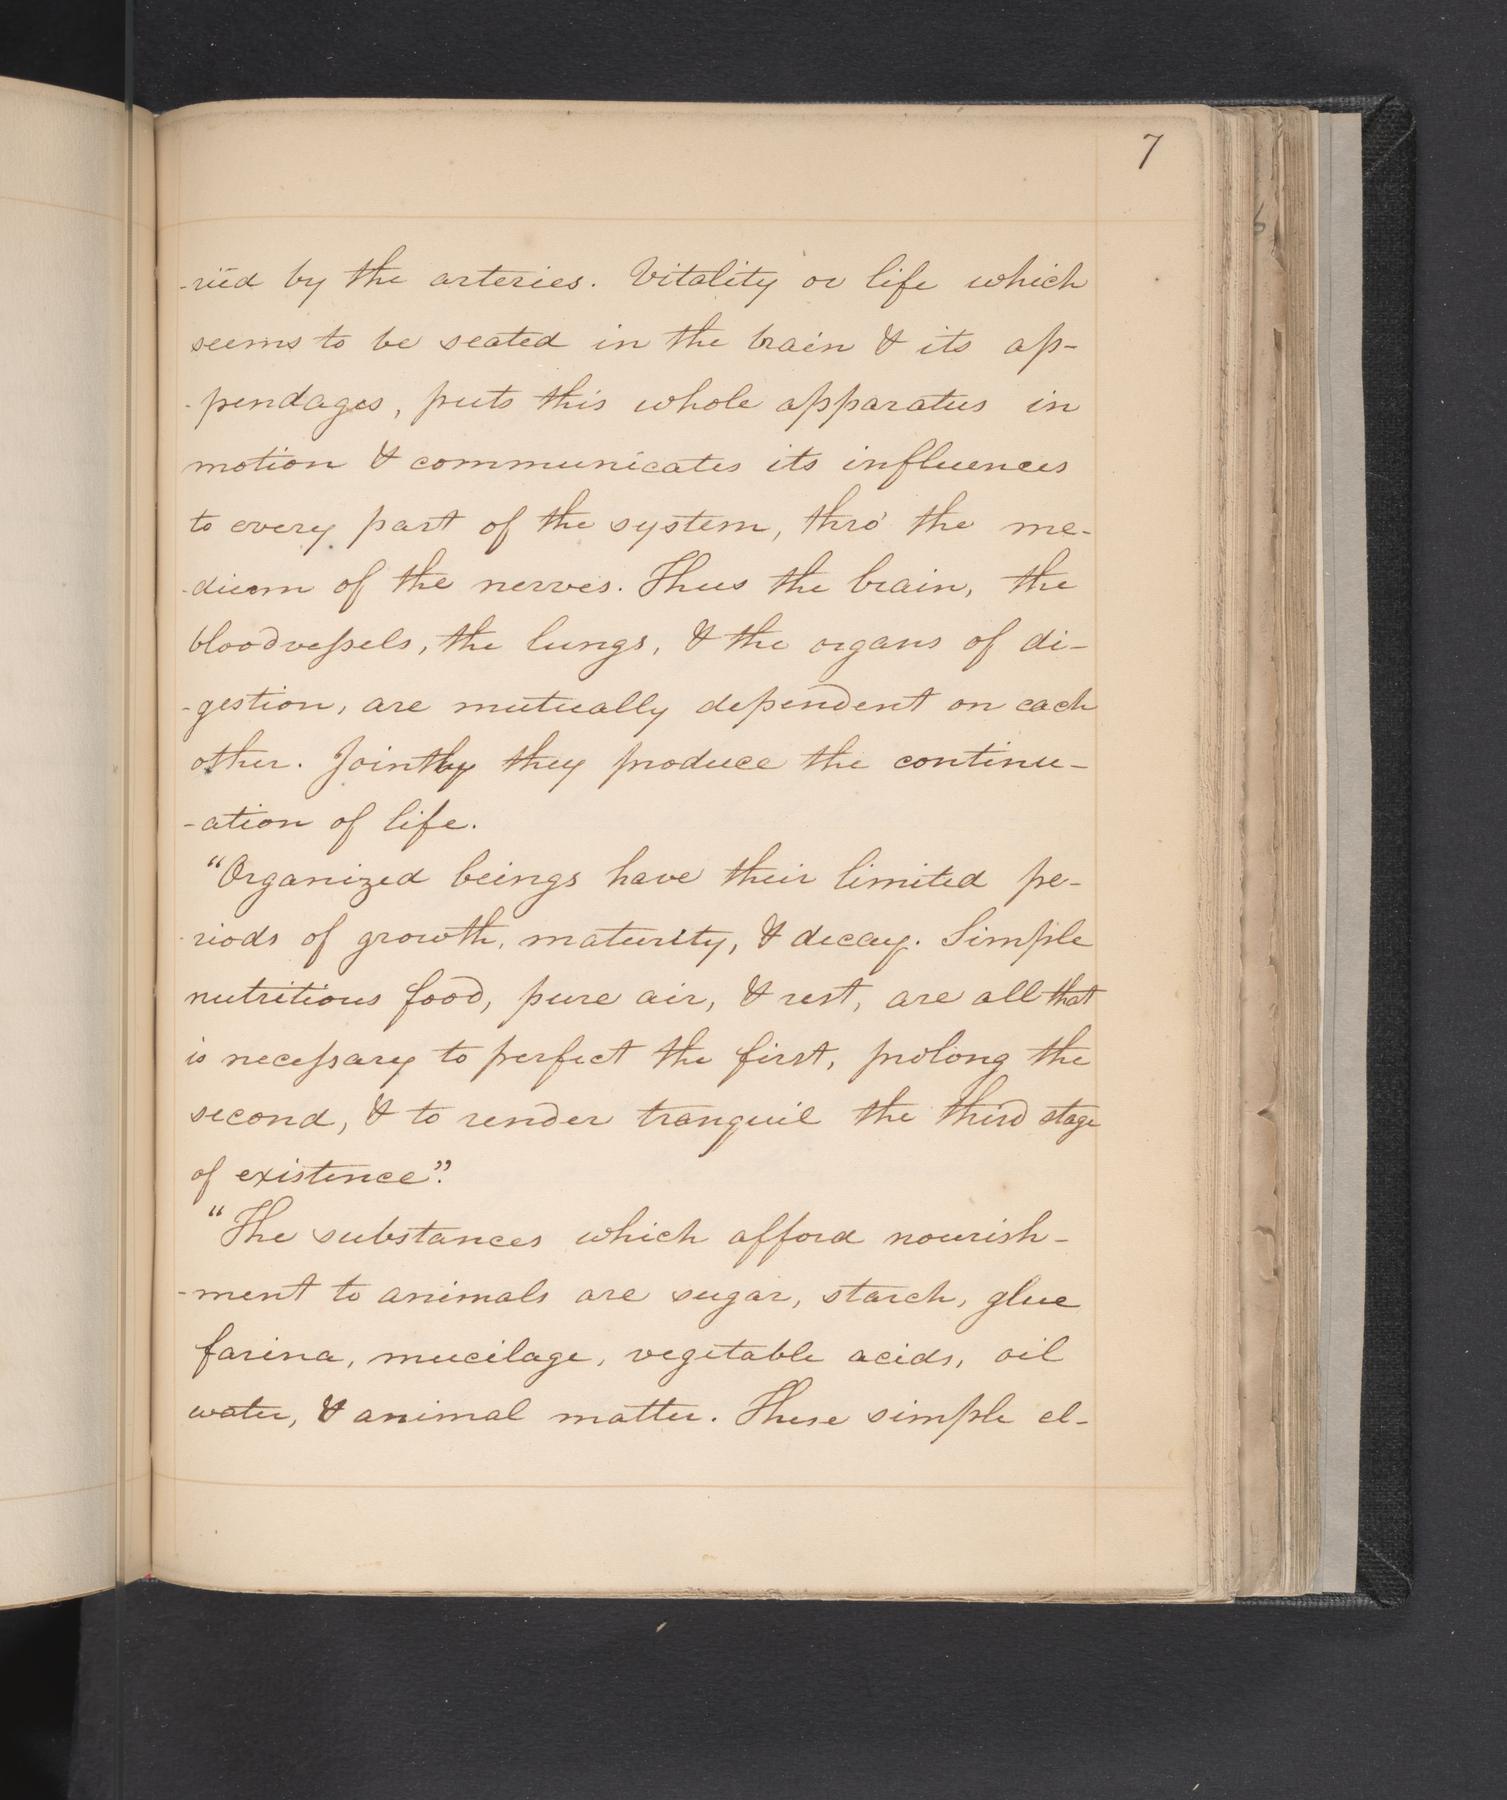 7
-ried by the arteries. Vitality or life which
seems to be seated in the brain & its ap-
-pendages, puts this whole apparatus in
motion & communicates its influences
to every part of the system, thro' the me-
-dium of the nerves. Thus the brain, the
bloodveſsels, the lungs, & the organs of di-
-gestion, are mutually dependent on each
other. Jointly they produce the continu-
-ation of life.
“Organized beings have their limited pe-
-riods of growth, maturity, & decay. Simple
nutritious food, pure air, & rest, are all that
is neceſsary to perfect the first, prolong the
second, & to render tranquil the third stage
of existence”.
“The substances which afford nourish-
-ment to animals are sugar, starch, glue
farina, mucilage, vegetable acids, oil
water, & animal matter. These simple el-
6